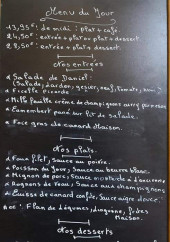 Menu du Jour
13,95€: de midi: plat + café.
24,50€: entrée + plat ou plat + dessert
29,50€: entrée + plat + dessert.
Nos entrées
* Salade de Daniel:
(Salade, lardon, gésier, oeuf, tomate,
* Ficelle picarde
* Mille feuille crème de champignons
* Camembert pané sur lit de salade.
* Foie gras de canard Maison.
Nos plats.
* Faux filet, sauce au poivre.
* Poisson du Jour, Sauce au beurre blanc.
* Mignon de porc, Sauce moutarde à l'ancienne
* Rognons de Veau, Sauce aux champignons
* Cuisse de canard confite, Sauce aigre douce.
Flan de légumes, frites
Maison.
Nos desserts